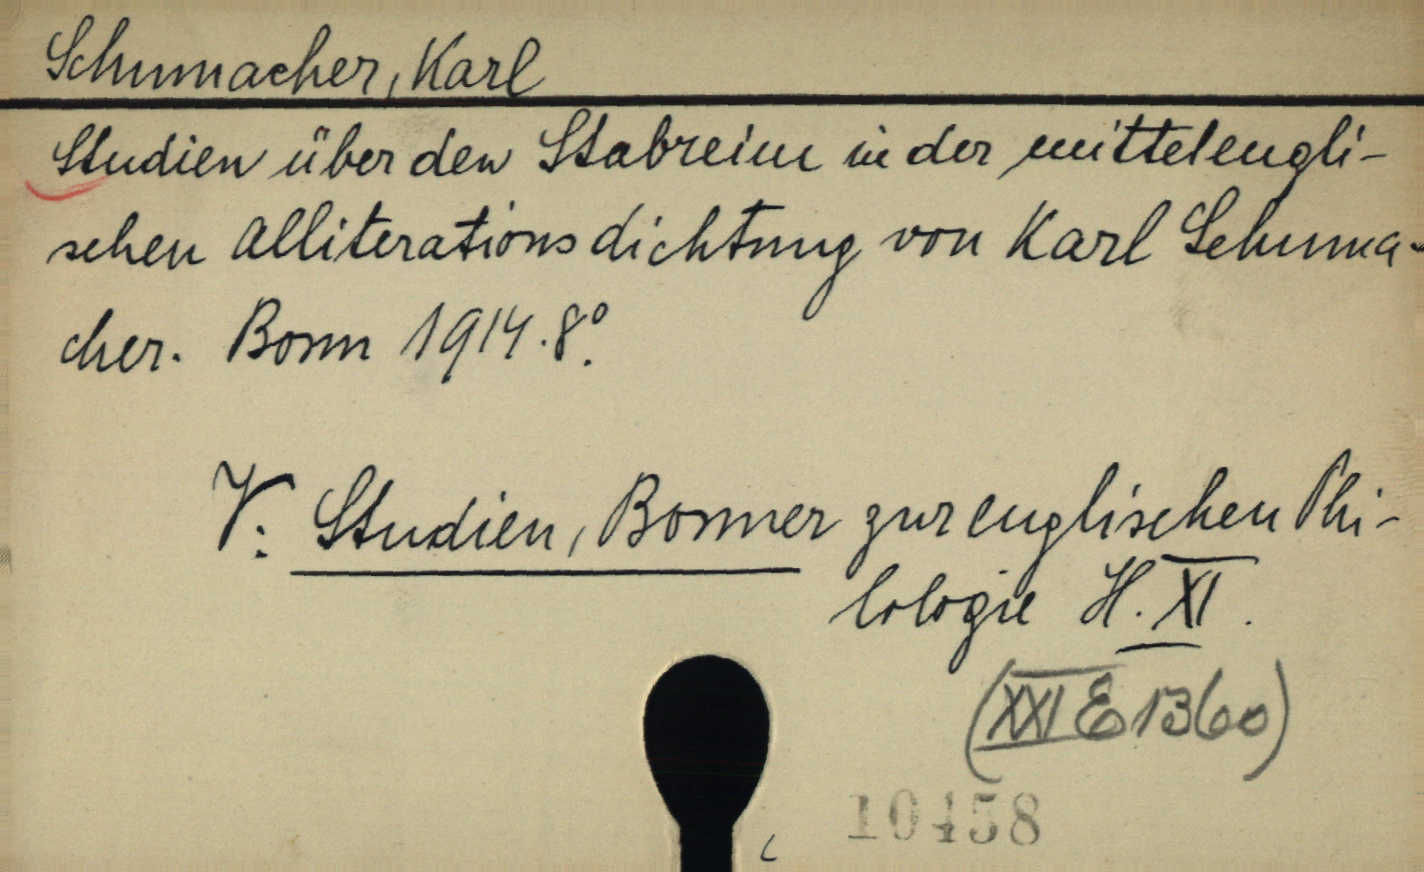 Schumacher, Karl
Studien über den Stabreim in der mittelengli-
schen Alliterationsdichtung von Karl Schuma-
cher. Bonn 1914. 8°.
V: Studien, Bonner zur englischen Phi-
lologie H. XI.
(XXI E 1360)
10458